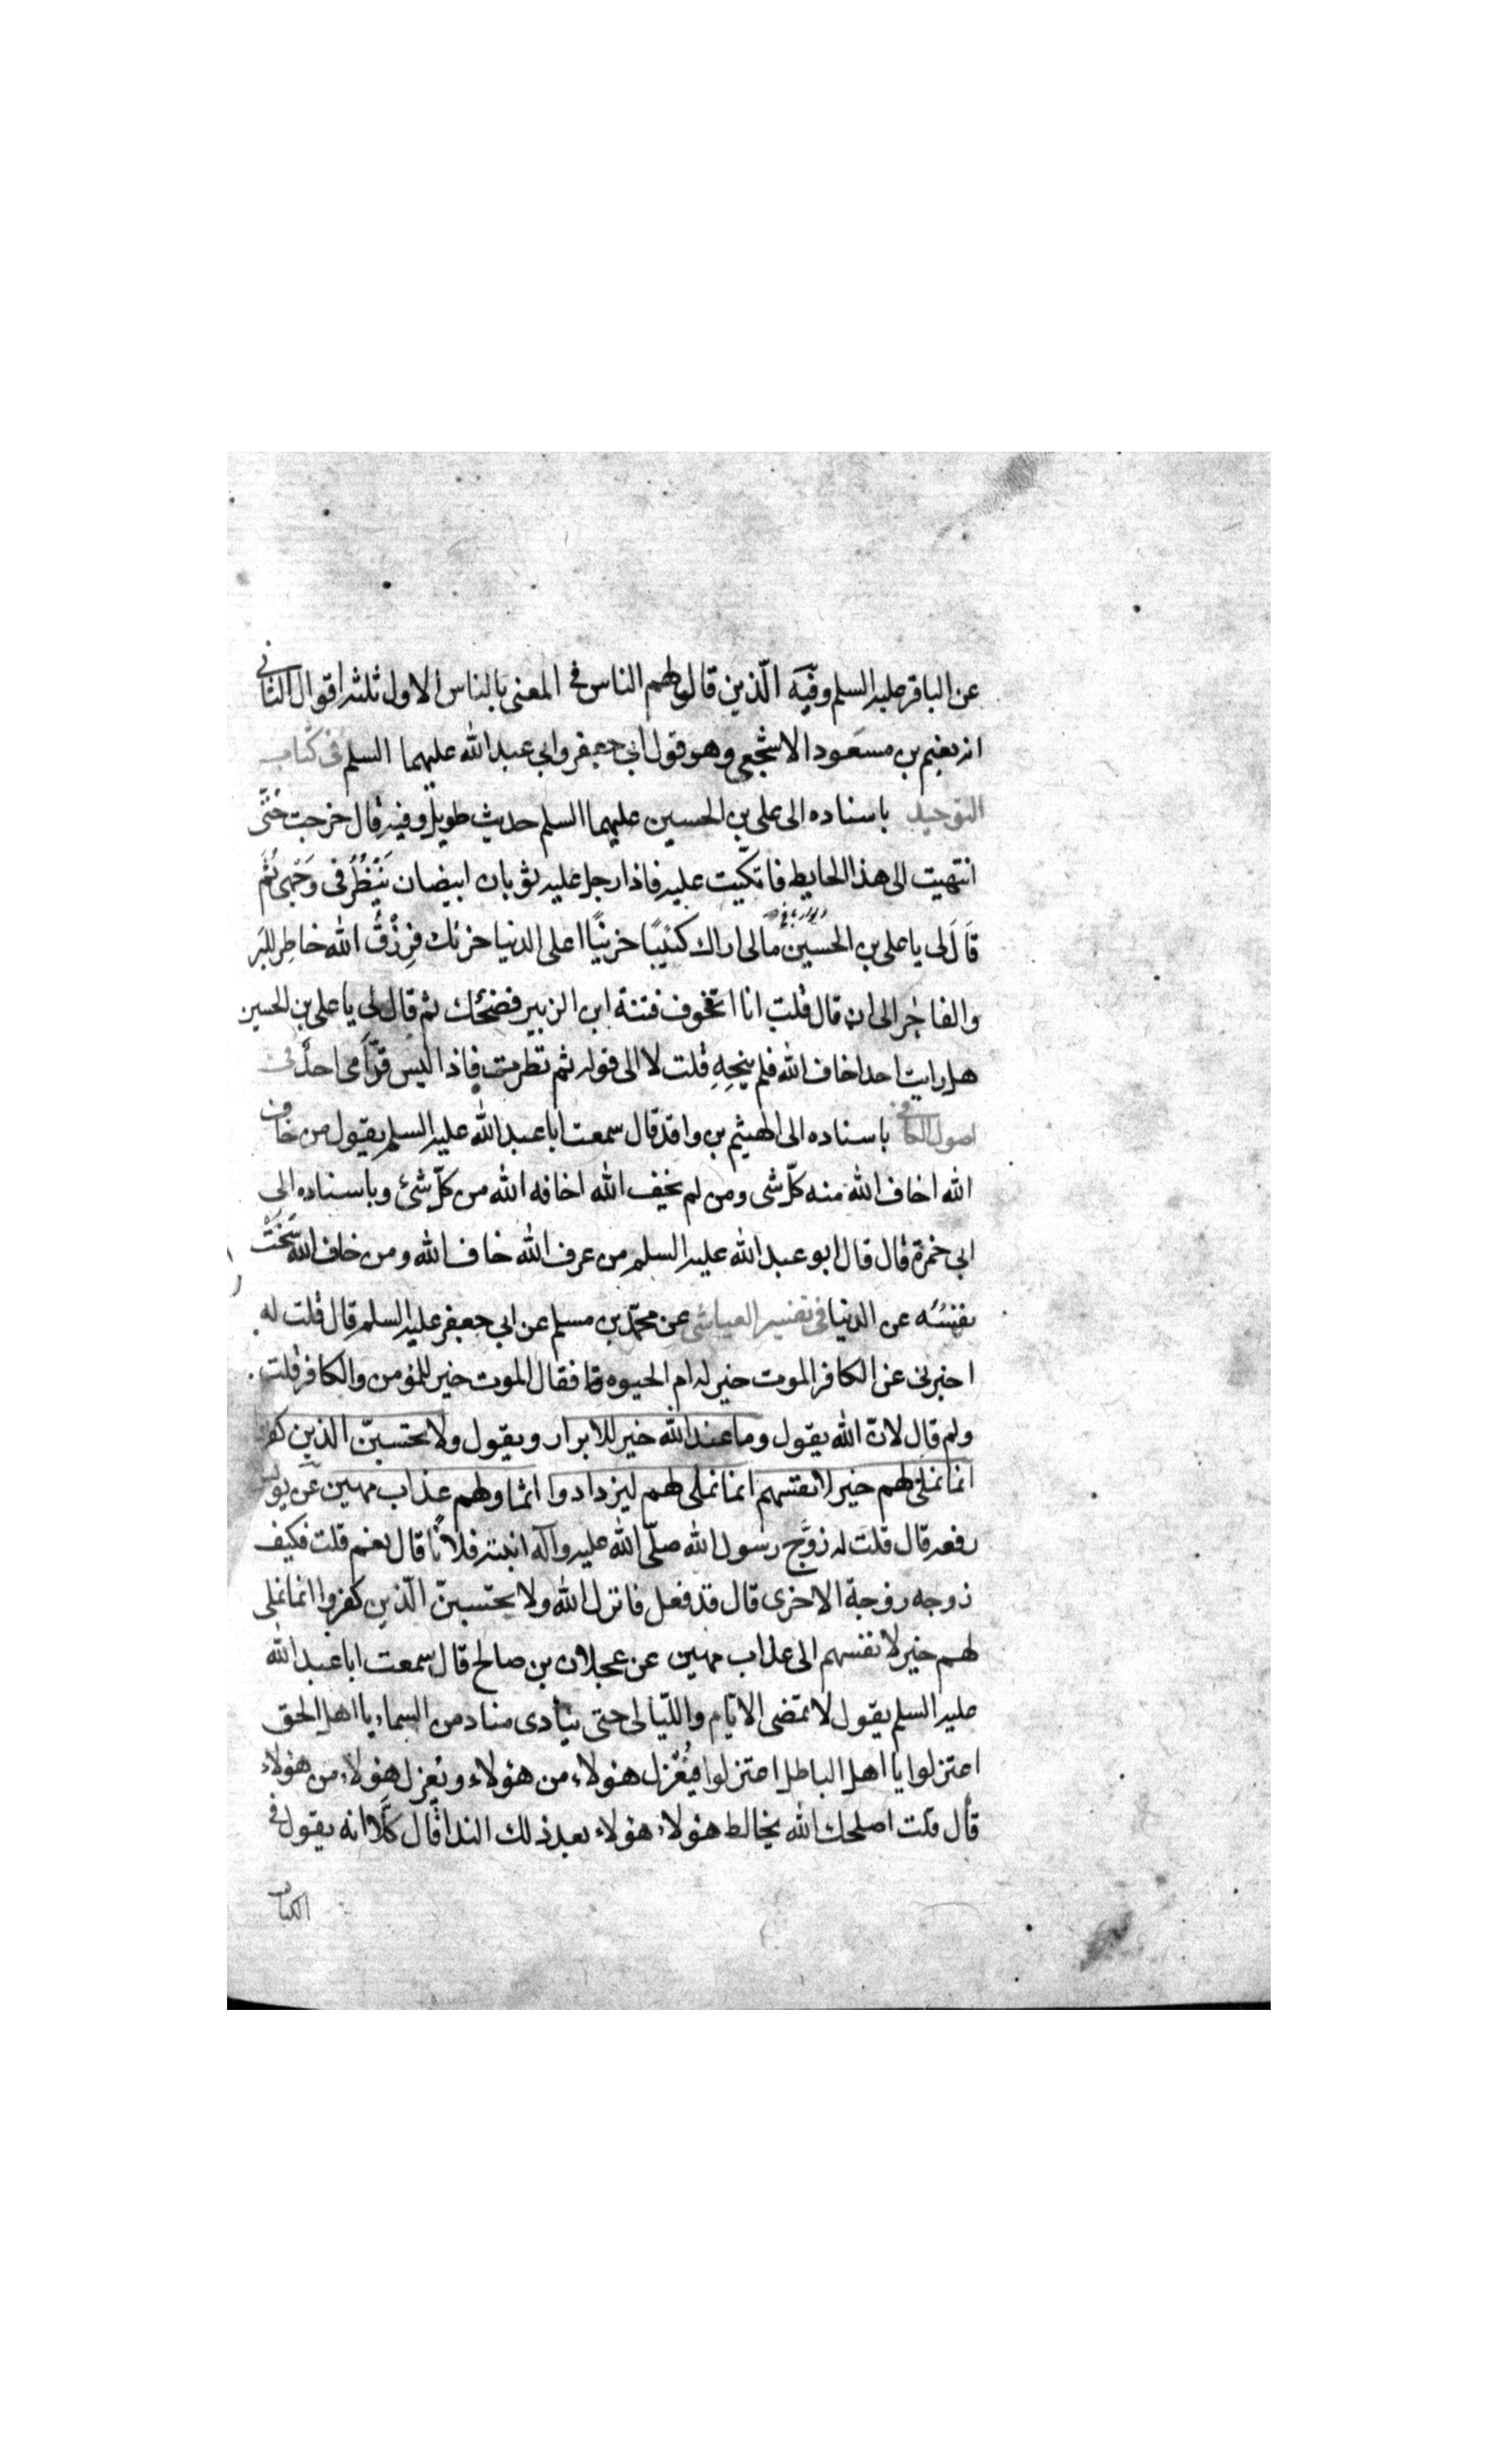 عن الباقر عليه السلم وفيه الّذين قالوا لهم الناس في المعنى بالناس الاول ثلثه اقوال الثانى
انه نعيم بن مسعود الاشجعى وهو قول ابي جعفر وابي عبد الله عليهما السلم في كتاب
التوحيد باسناده الى على بن الحسين عليهما السلم حديث طويل وفيه قال خرجت حتّى
انتهيت الى هذا الحايط فاتكّيت عليه فاذا رجل عليه ثوبان ابيضان يَنْظُرُ فى وَجهى ثمَّ
قَالَ لى يا على بن الحسين مالى اراك كئيبًا حزينًا اعلى الدنيا حزنك فرِزْقُ الله حاضر للبَر
والفاجر الى ان قال قلت انا اتخوف فتنة ابن الزبير فضحك ثم قال لى يا على بن الحسين
هل رايت احدا خاف الله فلم ينجِهِ قلت لا الى قوله ثم نظرت فاذا ليس قدّامى احدٌ فى
اصول الكافى باسناده الى الهيثم بن واقد قال سمعت ابا عبد الله عليه السلم يقول من خاف
الله اخاف الله منه كلّ شى ومن لم يخف الله اخافه الله من كلّ شئ وباسناده الى
ابي حمزة قال قال ابو عبد الله عليه السلم من عرف الله خاف الله ومن خاف الله سَخَتْ
نفسُه عن الدنيا فى تفسير العياشى عن محمّد بن مسلم عن ابي جعفر عليه السلم قال قلت له
اخبرنى عن الكافر الموت خير له ام الحيوه فقال الموت خير للمؤمن والكافر قلت
ولم قال لانّ الله يقول وما عند الله خير للابرار ويقول ولا يحسبنّ الذين كفروا
انما نملى لهم خير لانفسهم انما نملى لهم ليزدادوا اثما ولهم عذاب مهين عن يونس
رفعه قال قلت له زوَّج رسول الله صلّى الله عليه وآله ابنته فلانًا قال نعم قلت فكيف
زوجه زوجة الاخرى قال قد فعل فانزل الله ولا يحسبنّ الّذين كفروا انما نملى
لهم خير لانفسهم الى عذاب مهين عن عجلان بن صالح قال سمعت ابا عبد الله
عليه السلم يقول لا تمضى الايّام والليّالى حتى ينادى مناد من السماء يا اهل الحق
اعتزلوا يا اهل الباطل اعتزلوا فيُعْزل هؤلاء من هؤلاء ويعزل هؤلاء من هؤلاء
قال قلت اصلحك الله يخالط هؤلاء هؤلاء بعد ذلك الندا قال كلّا انه يقول فى
الكتاب